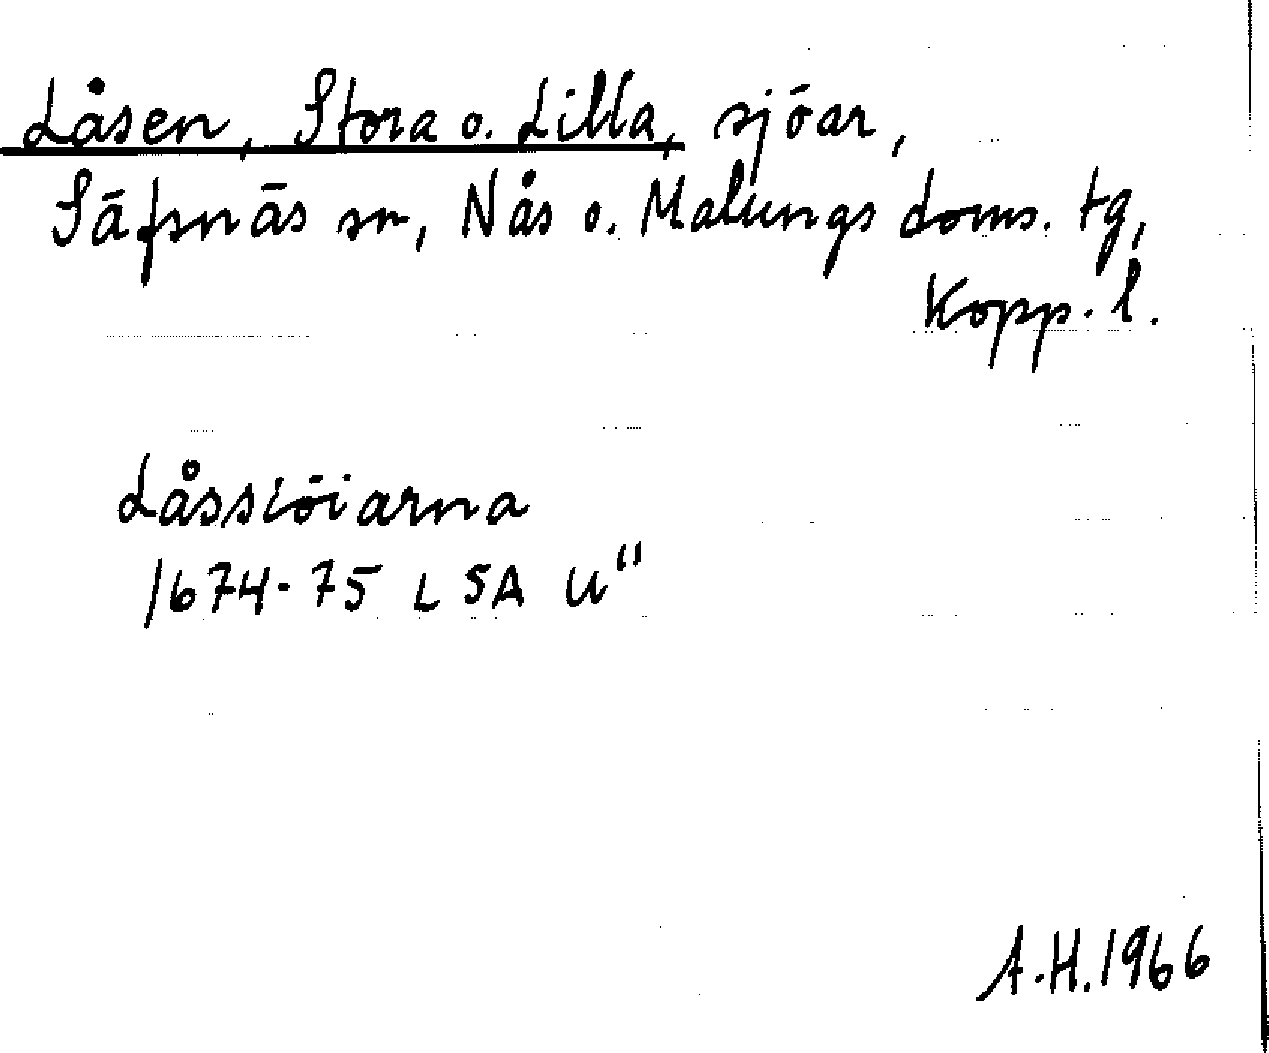 Låsen, Stora o. Lilla, sjöar,
Säfsnäs sn, Nås o. Malungs doms. tg,
Kopp. l.
Låssiöiarna
1674-75 LSA U"
A.H. 1966